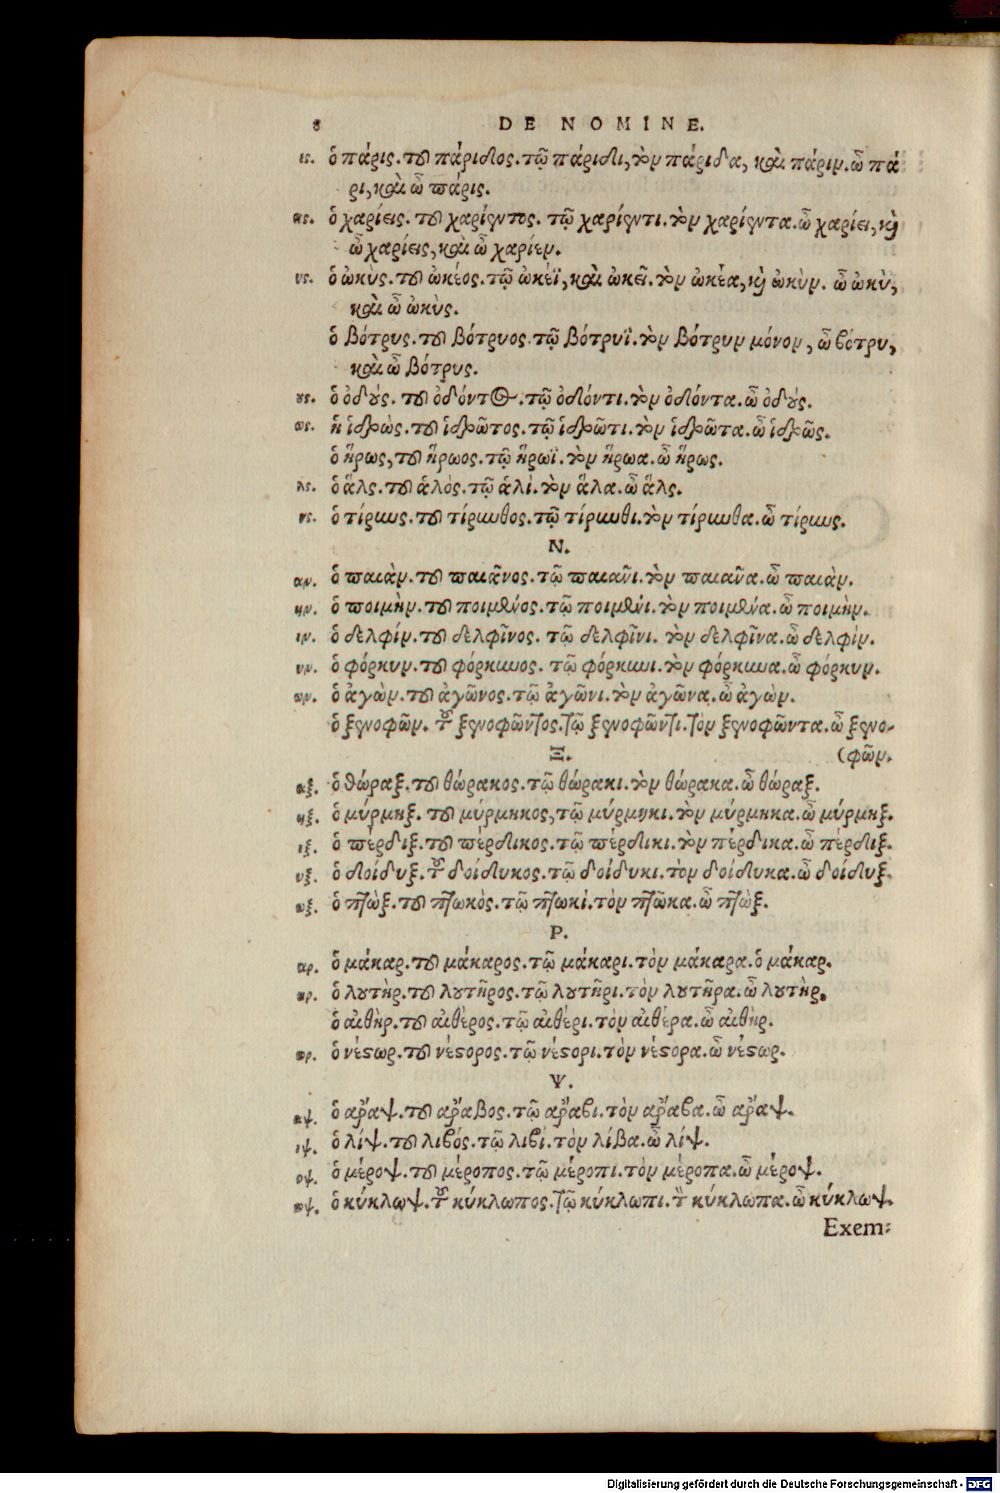 8 DE NOMINE.
ις. ὁ πάρις. τοῦ πάριδος. τῷ πάριδι, τὸν πάριδα, καὶ πάριν. ὦ πά
ρι, καὶ ὦ πάρις.
εις. ὁ χαρίεις. τοῦ χαρίεντος. τῷ χαρίεντι. τὸν χαρίεντα. ὦ χαρίει, καὶ
ὦ χαρίεις, καὶ ὦ χαρίεν.
υς. ὁ ὠκὺς. τοῦ ὠκέος. τῷ ὠκέϊ, καὶ ὠκεῖ. τὸν ὠκέα, καὶ ὠκὺν. ὦ ὠκὺ,
καὶ ὦ ὠκὺς.
ὁ βότρυς. τοῦ βότρυος. τῷ βότρυϊ. τὸν βότρυν μόνον, ὦ βότρυ,
καὶ ὦ βότρυς.
ους. ὁ ὀδούς. τοῦ ὀδόντος. τῷ ὀδόντι. τὸν ὀδόντα. ὦ ὀδούς.
ως. ἡ ἱδρὼς. τοῦ ἱδρῶτος. τῷ ἱδρῶτι. τὸν ἱδρῶτα. ὦ ἱδρῶς.
ὁ ἥρως, τοῦ ἥρωος. τῷ ἥρωϊ. τὸν ἥρωα. ὦ ἥρως.
λς. ὁ ἅλς. τοῦ ἁλὸς. τῷ ἁλὶ. τὸν ἅλα. ὦ ἅλς.
νς. ὁ τίρυνς. τοῦ τίρυνθος. τῷ τίρυνθι. τὸν τίρυνθα. ὦ τίρυνς.
Ν.
αν. ὁ παιὰν. τοῦ παιᾶνος. τῷ παιᾶνι. τὸν παιᾶνα. ὦ παιὰν.
ην. ὁ ποιμὴν. τοῦ ποιμένος. τῷ ποιμένι. τὸν ποιμένα. ὦ ποιμὴν.
ιν. ὁ δελφίν. τοῦ δελφῖνος. τῷ δελφῖνι. τὸν δελφῖνα. ὦ δελφὶν.
υν. ὁ φόρκυν. τοῦ φόρκυνος. τῷ φόρκυνι. τὸν φόρκυνα. ὦ φόρκυν.
ων. ὁ ἀγὼν. τοῦ ἀγῶνος. τῷ ἀγῶνι. τὸν ἀγῶνα. ὦ ἀγὼν.
ὁ ξενοφῶν. τοῦ ξενοφῶντος. τῷ ξενοφῶντι. τὸν ξενοφῶντα. ὦ ξενο-
Ξ. (φῶν.
αξ. ὁ θώραξ. τοῦ θώρακος. τῷ θώρακι. τὸν θώρακα. ὦ θώραξ.
ηξ. ὁ μύρμηξ. τοῦ μύρμηκος, τῷ μύρμηκι. τὸν μύρμηκα. ὦ μύρμηξ.
ιξ. ὁ πέρδιξ. τοῦ πέρδικος. τῷ πέρδικι. τὸν πέρδικα. ὦ πέρδιξ.
υξ. ὁ δοίδυξ. τοῦ δοίδυκος. τῷ δοίδυκι. τὸν δοίδυκα. ὦ δοίδυξ.
ωξ. ὁ πτὼξ. τοῦ πτωκὸς. τῷ πτωκί. τὸν πτῶκα. ὦ πτὼξ.
Ρ.
αρ. ὁ μάκαρ. τοῦ μάκαρος. τῷ μάκαρι. τὸν μάκαρα. ὁ μάκαρ.
ηρ. ὁ λουτὴρ. τοῦ λουτῆρος. τῷ λουτῆρι. τὸν λουτῆρα. ὦ λουτὴρ.
ὁ αἰθὴρ. τοῦ αἰθέρος. τῷ αἰθέρι. τὸν αἰθέρα. ὦ αἰθὴρ.
ωρ. ὁ νέστωρ. τοῦ νέστορος. τῷ νέστορι. τὸν νέστορα. ὦ νέστωρ.
Ψ.
αψ. ὁ ἄραψ. τοῦ ἄραβος. τῷ ἄραβι. τὸν ἄραβα. ὦ ἄραψ.
ιψ. ὁ λίψ. τοῦ λιβός. τῷ λιβί. τὸν λίβα. ὦ λίψ.
οψ. ὁ μέροψ. τοῦ μέροπος. τῷ μέροπι. τὸν μέροπα. ὦ μέροψ.
ωψ. ὁ κύκλωψ. τοῦ κύκλωπος. τῷ κύκλωπι. τὸν κύκλωπα. ὦ κύκλωψ.
Exem-
Digitalisierung gefördert durch die Deutsche Forschungsgemeinschaft - DFG